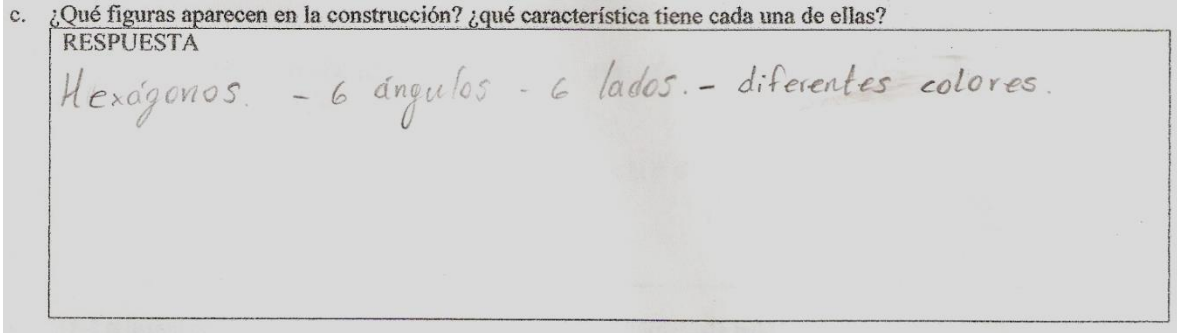 c. ¿Qué figuras aparecen en la construcción? ¿qué característica tiene cada una de ellas?
RESPUESTA
Hexágonos. - 6 ángulos - 6 lados. - diferentes colores.